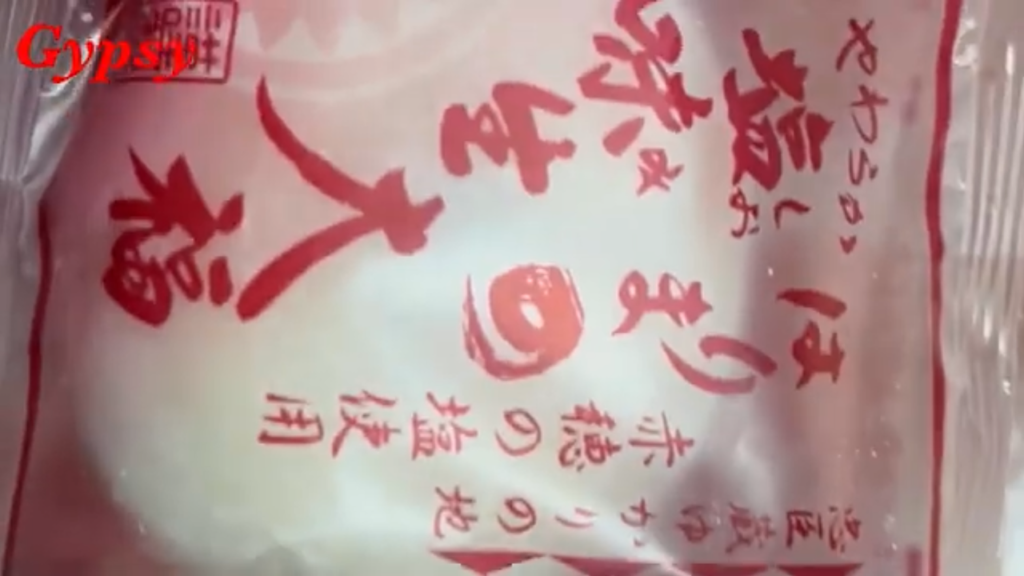 Gypsy
やわらか
忠臣蔵ゆかりの地
赤穂の塩使用
はりまの
塩味
しお
生大福